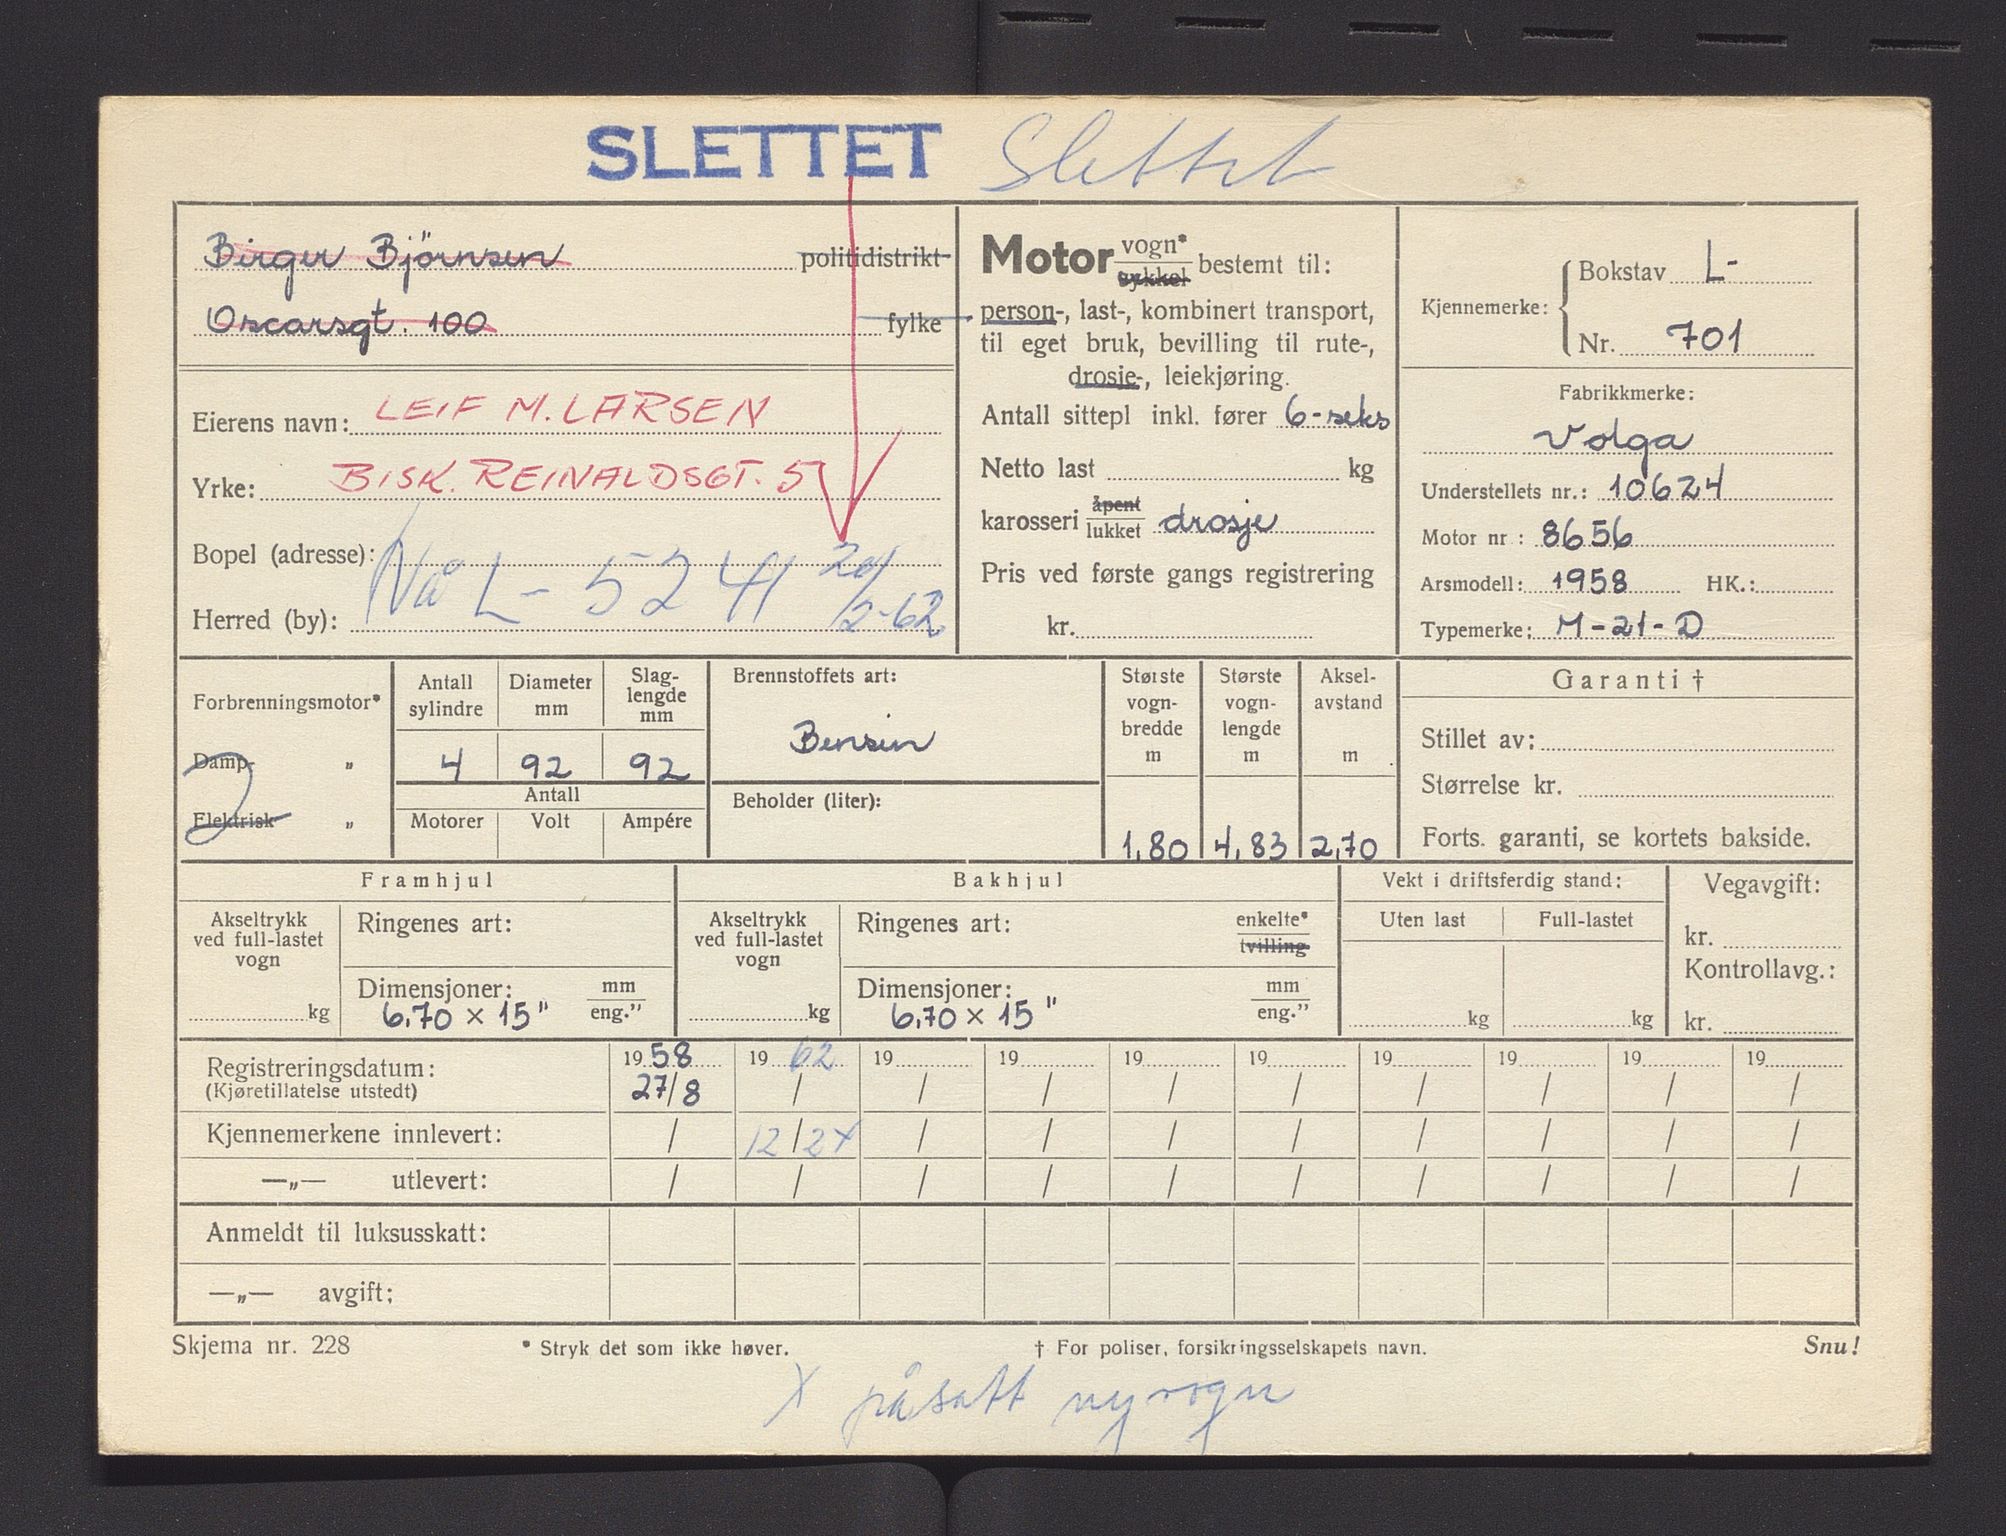 SLETTET Slettet
Birger Björnsen politidistrikt
Oscarsgt. 100 fylke
Eierens navn: LEIF M. LARSEN
Yrke: BISK. REINALDSGT. 5
Bopel (adresse):
Nå L- 5241
Herred (by): 2-62
Motor vogn* sykkel bestemt til:
person-, last-, kombinert transport,
til eget bruk, bevilling til rute-,
drosje-, leiekjøring.
Antall sittepl inkl. fører 6-seks
Netto last kg
karosseri åpent lukket drosje
Pris ved første gangs registrering
kr.
Kjennemerke: Bokstav L-
Nr. 701
Fabrikkmerke:
Volga
Understellets nr.: 10624
Motor nr : 8656
Arsmodell: 1958 HK.:
Typemerke: M-21-D
Forbrenningsmotor*
Damp- „
Elektrisk „
Antall sylindre Diameter mm Slag-lengde mm
4 92 92
Antall
Motorer Volt Ampére
Brennstoffets art:
Bensin
Beholder (liter):
Største vogn-bredde m Største vogn-lengde m Aksel-avstand m
1,80 4,83 2,70
Garanti †
Stillet av:
Størrelse kr.
Forts. garanti, se kortets bakside.
Framhjul
Akseltrykk ved full-lastet vogn
kg
Ringenes art:
Dimensjoner: mm eng.”
6,70 × 15"
Bakhjul
Akseltrykk ved full-lastet vogn
kg
Ringenes art: enkelte* tvilling
Dimensjoner: mm eng.”
6,70 × 15"
Vekt i driftsferdig stand:
Uten last Full-lastet
kg kg
Vegavgift:
kr.
Kontrollavg.:
kr.
Registreringsdatum: 19 58 19 62 19 19 19 19 19 19 19 19
(Kjøretillatelse utstedt) 27/8 / / / / / / / / /
Kjennemerkene innlevert: / 12/2 / / / / / / / /
—„— utlevert: / / / / / / / / / /
Anmeldt til luksusskatt:
—„— avgift:
Skjema nr. 228 * Stryk det som ikke høver. † For poliser, forsikringsselskapets navn. Snu!
X påsatt ny vogn